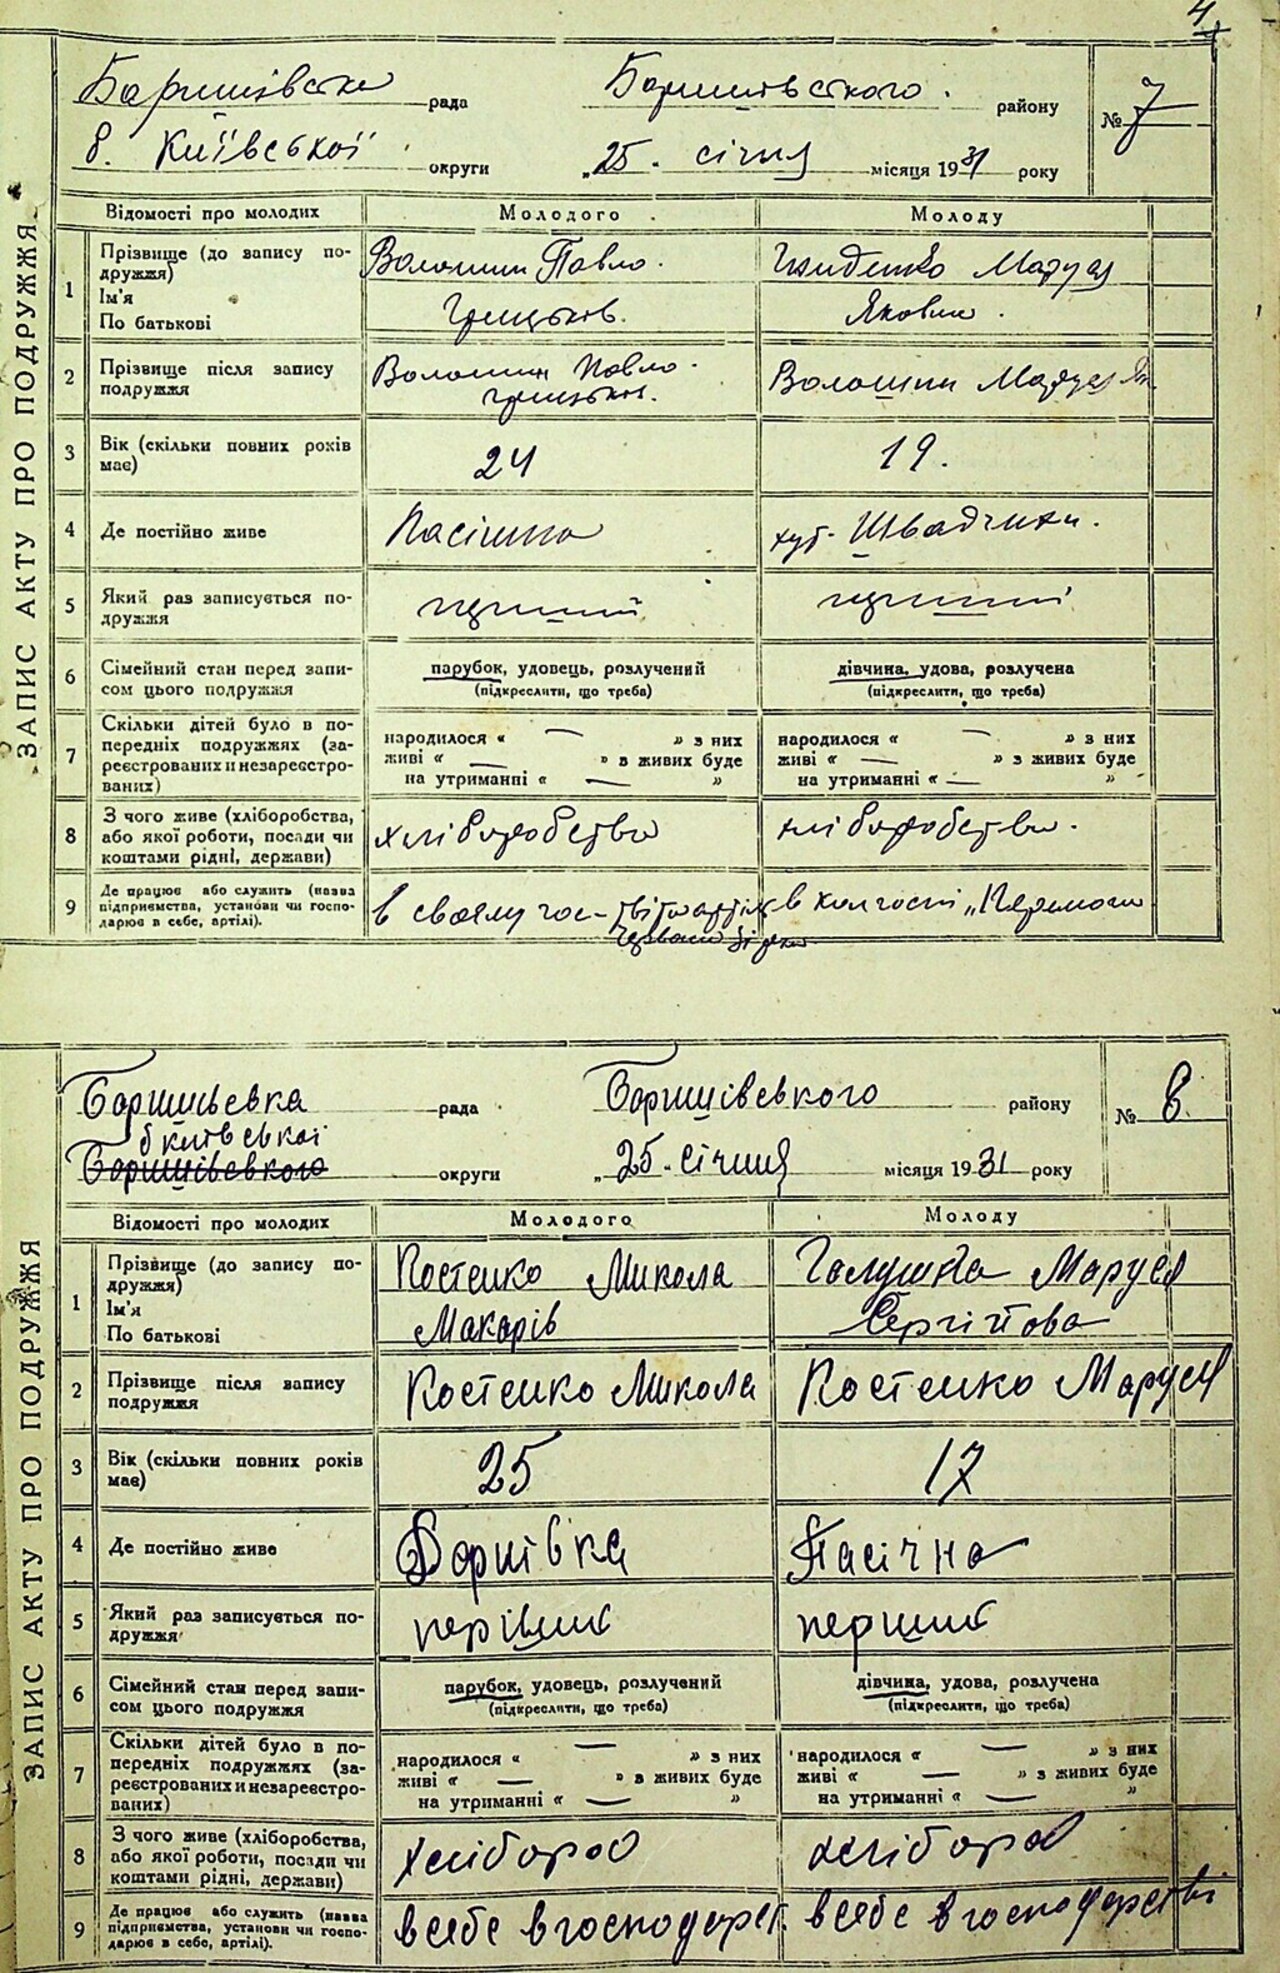 4
Баришівська рада Баришівського району № 7
б. Київської округи „25" січня місяця 1931 року
ЗАПИС АКТУ ПРО ПОДРУЖЖЯ
Відомості про молодих Молодого Молоду
1 Прізвище (до запису по- Волошин Павло Маруся
дружжя)
Ім'я Грицьків. Яковна
По батькові
2 Прізвище після запису Волошин Павло Волошин Маруся Як.
подружжя Грицьков.
3 Вік (скільки повних років 24 19.
має)
4 Де постійно живе Пасішна хут. Швадчихи.
5 Який раз записується по- перший перший
дружжя
6 Сімейний стан перед запи- парубок, удовець, розлучений дівчина, удова, розлучена
сом цього подружжя (підкреслити, що треба) (підкреслити, що треба)
7 Скільки дітей було в по- народилося « — » з них народилося « — » з них
передніх подружжях (за- живі « — » з живих буде живі « — » з живих буде
реєстрованих и незареєстро- на утриманні « — » на утриманні « — »
ваних)
8 З чого живе (хліборобства, хліборобства хліборобства.
або якої роботи, посади чи
коштами рідні, держави)
9 Де працює або служить (назва в своєму гос- в колгоспі „Перемога
підприємства, установи чи госпо-
дарює в себе, артілі).
Баришівська рада Баришівського району № 8.
б Київської
Баришівського округи „25" січня місяця 1931 року
ЗАПИС АКТУ ПРО ПОДРУЖЖЯ
Відомості про молодих Молодого Молоду
1 Прізвище (до запису по- Костенко Микола Галушка Маруся
дружжя)
Ім'я Макарів Сергійова
По батькові
2 Прізвище після запису Костенко Микола Костенко Маруся
подружжя
3 Вік (скільки повних років 25 17
має)
4 Де постійно живе Дернівка Пасічна
5 Який раз записується по- перший перший
дружжя
6 Сімейний стан перед запи- парубок, удовець, розлучений дівчина, удова, розлучена
сом цього подружжя (підкреслити, що треба) (підкреслити, що треба)
7 Скільки дітей було в по- народилося « — » з них народилося « — » з них
передніх подружжях (за- живі « — » з живих буде живі « — » з живих буде
реєстрованих и незареєстро- на утриманні « — » на утриманні « — »
ваних)
8 З чого живе (хліборобства, хлібороб хлібороб
або якої роботи, посади чи
коштами рідні, держави)
9 Де працює або служить (назва в себе в господарст. в себе в господарстві
підприємства, установи чи госпо-
дарює в себе, артілі).